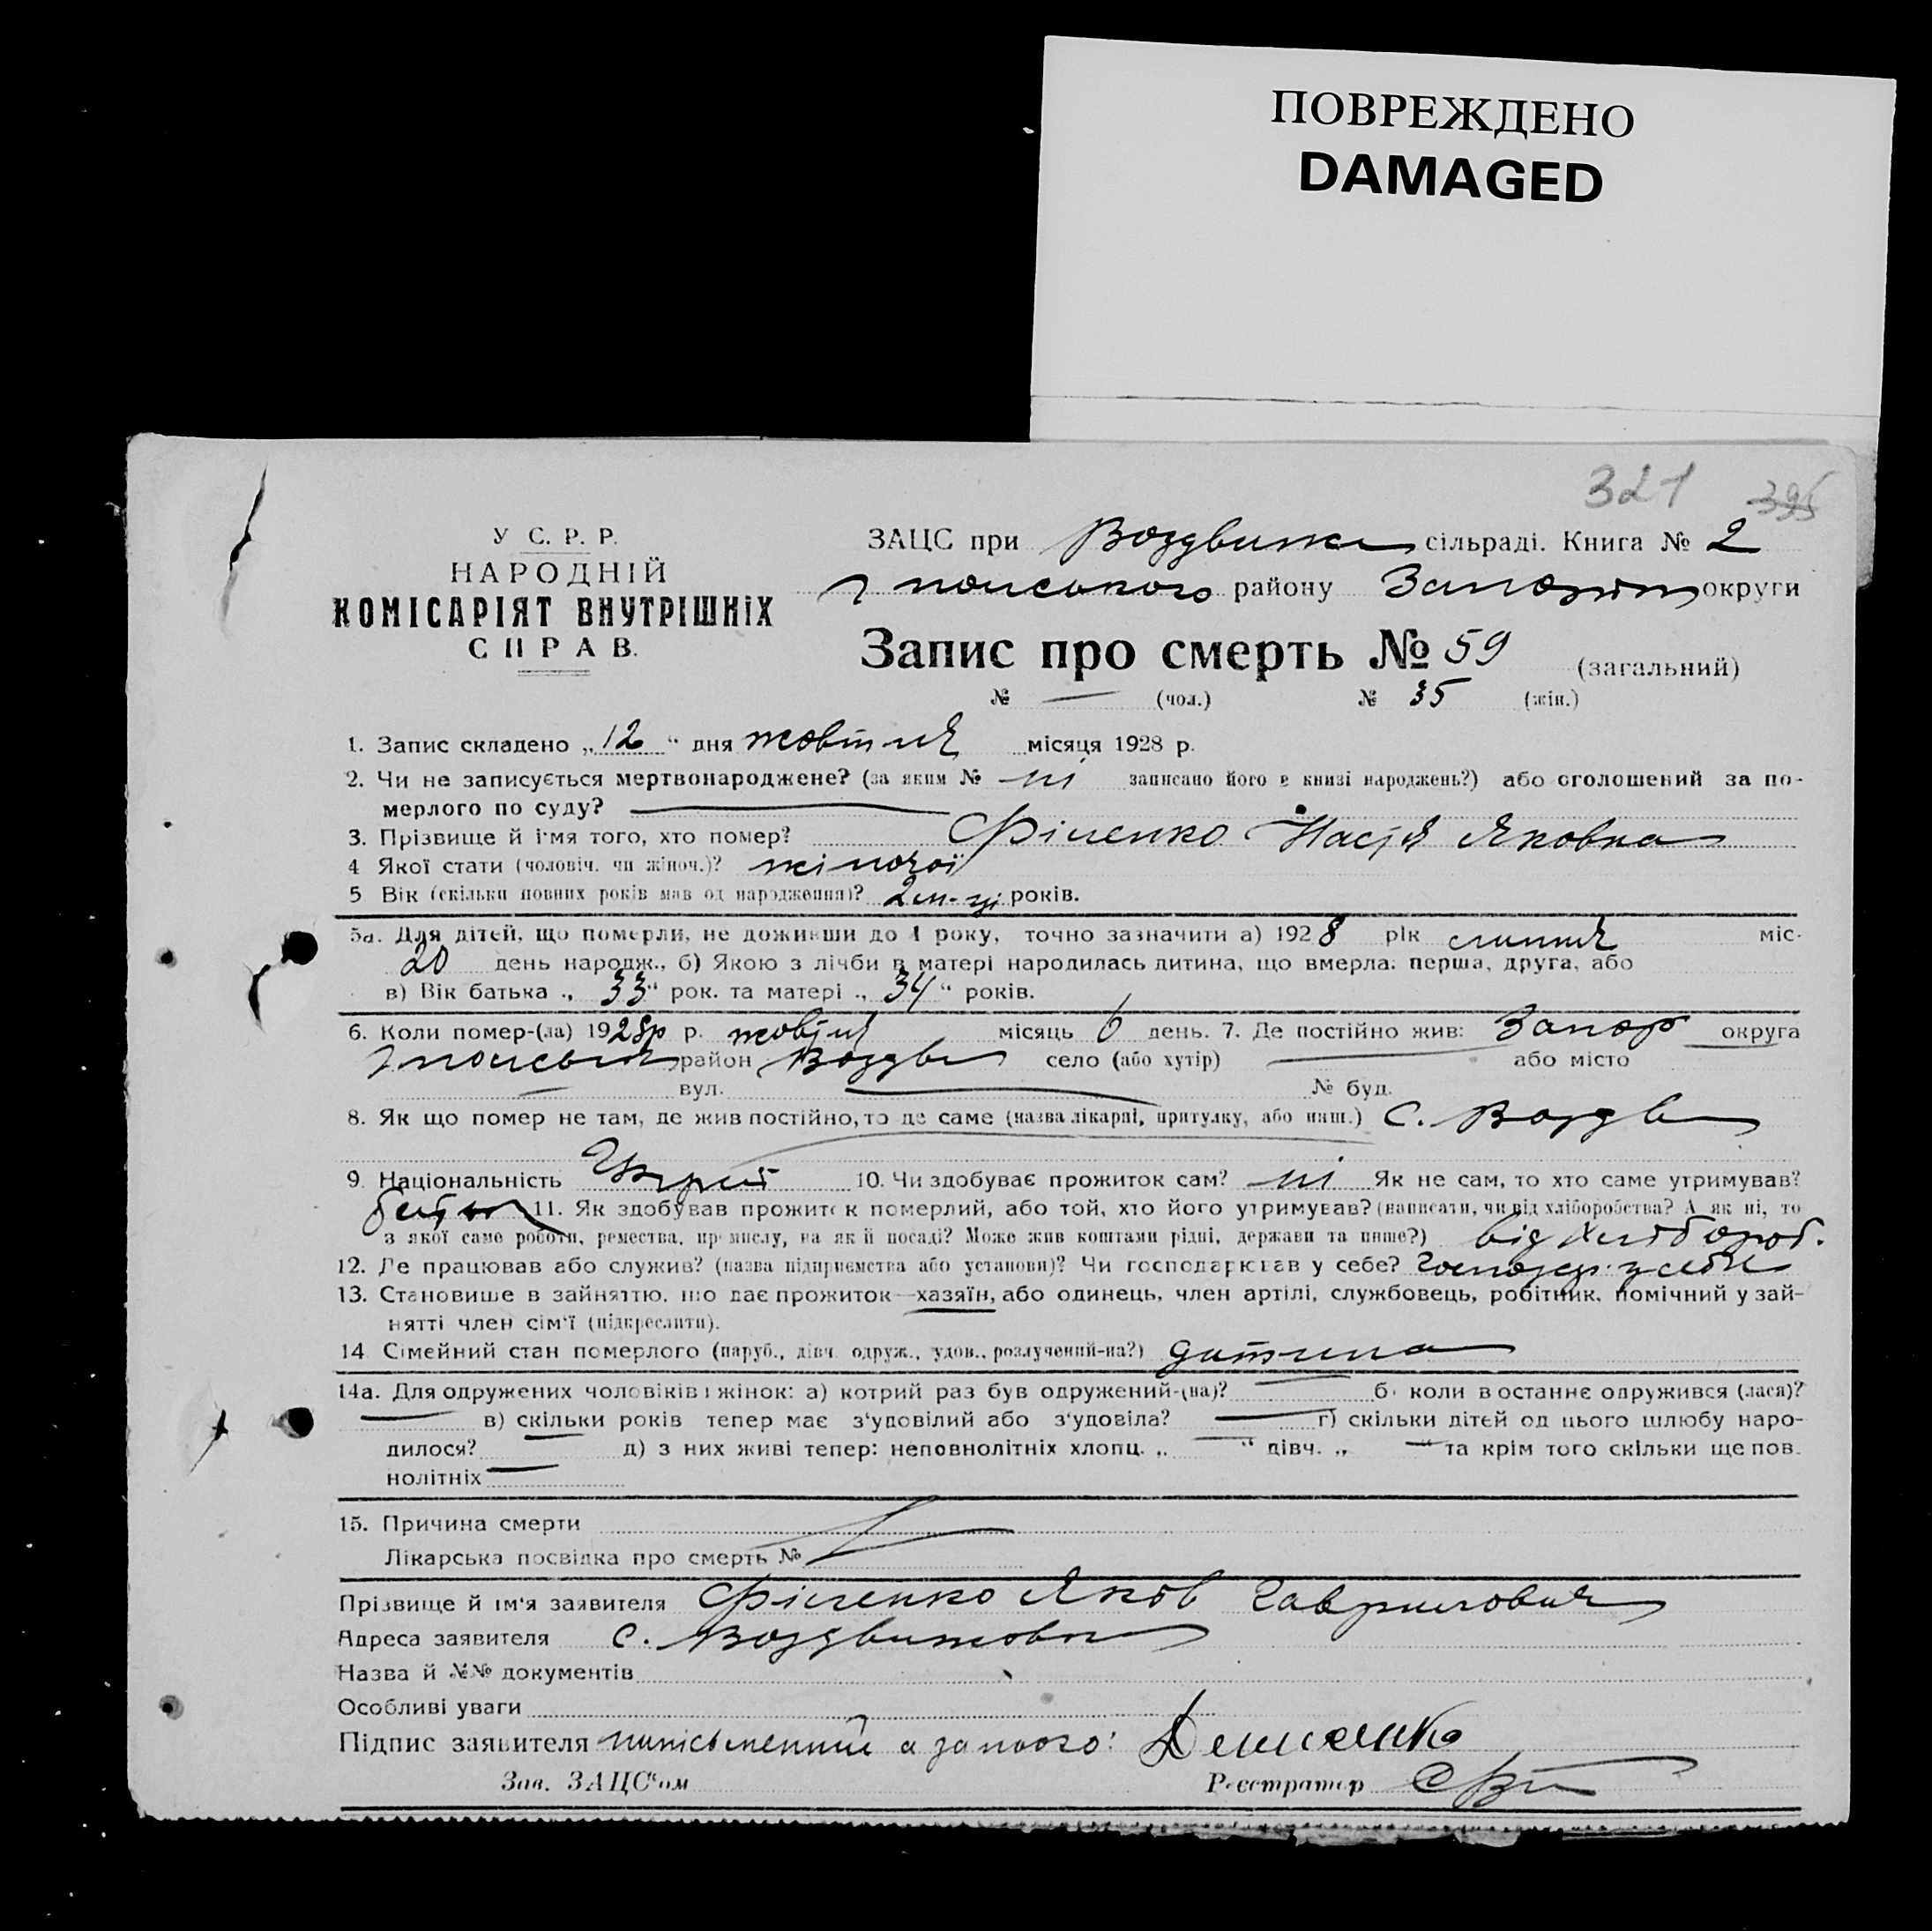 ПОВРЕЖДЕНО
DAMAGED
321 395
У С. Р. Р.
НАРОДНІЙ
КОМІСАРІЯТ ВНУТРІШНІХ
СПРАВ.
ЗАЦС при Воздвиж сільраді. Книга № 2
району Запоріж округи
Запис про смерть № 59 (загальний)
№ — (чол.) № 35 (жін.)
1. Запис складено „12“ дня жовтня місяця 1928 р.
2. Чи не записується мертвонароджене? (за яким № ні записано його в книзі народжень?) або оголошений за по-
мерлого по суду? —
3. Прізвище й ім'я того, хто помер? Філенко Настя Яковна
4 Якої стати (чоловіч. чи жіноч.)? жіночої
5 Вік (скільки повних років мав од народження)? 2 м-ці років.
5а. Для дітей, що померли, не доживши до 1 року, точно зазначити а) 1928 рік міс.
20 день народж., б) Якою з лічби в матері народилась дитина, що вмерла: перша, друга, або
в) Вік батька „33“ рок. та матері „34“ років.
6. Коли помер-(ла) 1928р р. жовтня місяць 6 день. 7. Де постійно жив: Запор округа
район Воздв село (або хутір) — або місто
— вул. — № буд.
8. Як що помер не там, де жив постійно, то де саме (назва лікарні, притулку, або инш.) с. Воздв
9. Національність Україн 10. Чи здобуває прожиток сам? ні Як не сам, то хто саме утримував?
батько 11. Як здобував прожиток померлий, або той, хто його утримував? (написати, чи від хліборобства? А як ні, то
з якої саме роботи, ремества, промислу, на якій посаді? Може жив коштами рідні, держави та инше?) від Хлібороб.
12. Де працював або служив? (назва підприємства або установи)? Чи господарював у себе? Господар. у себе
13. Становище в зайняттю, що дає прожиток—хазяїн, або одинець, член артілі, службовець, робітник, помічний у зай-
нятті член сім'ї (підкреслити).
14 Сімейний стан померлого (паруб., дівч. одруж., удов., розлучений-на?) дитина
14а. Для одружених чоловіків і жінок: а) котрий раз був одружений-(на)? — б) коли в останнє одружився (лася)?
— в) скільки років тепер має з'удовілий або з'удовіла? — г) скільки дітей од цього шлюбу наро-
дилося? — д) з них живі тепер: неповнолітніх хлопц. „—“ дівч. „—“ та крім того скільки ще пов-
нолітніх —
15. Причина смерти
Лікарська посвідка про смерть №
Прізвище й ім'я заявителя Філенко Яков Гаврилович
Адреса заявителя с. Воздвижовка
Назва й №№ документів
Особливі уваги
Підпис заявителя а за нього:
Зав. ЗАЦС'ом Реєстратор